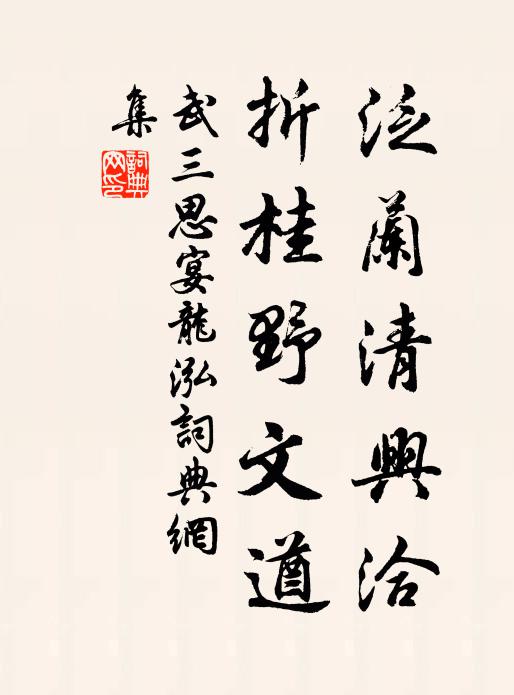 泛蘭清興洽
折桂野文遒
武三思宴龍泓詞典網
集
詞典網印